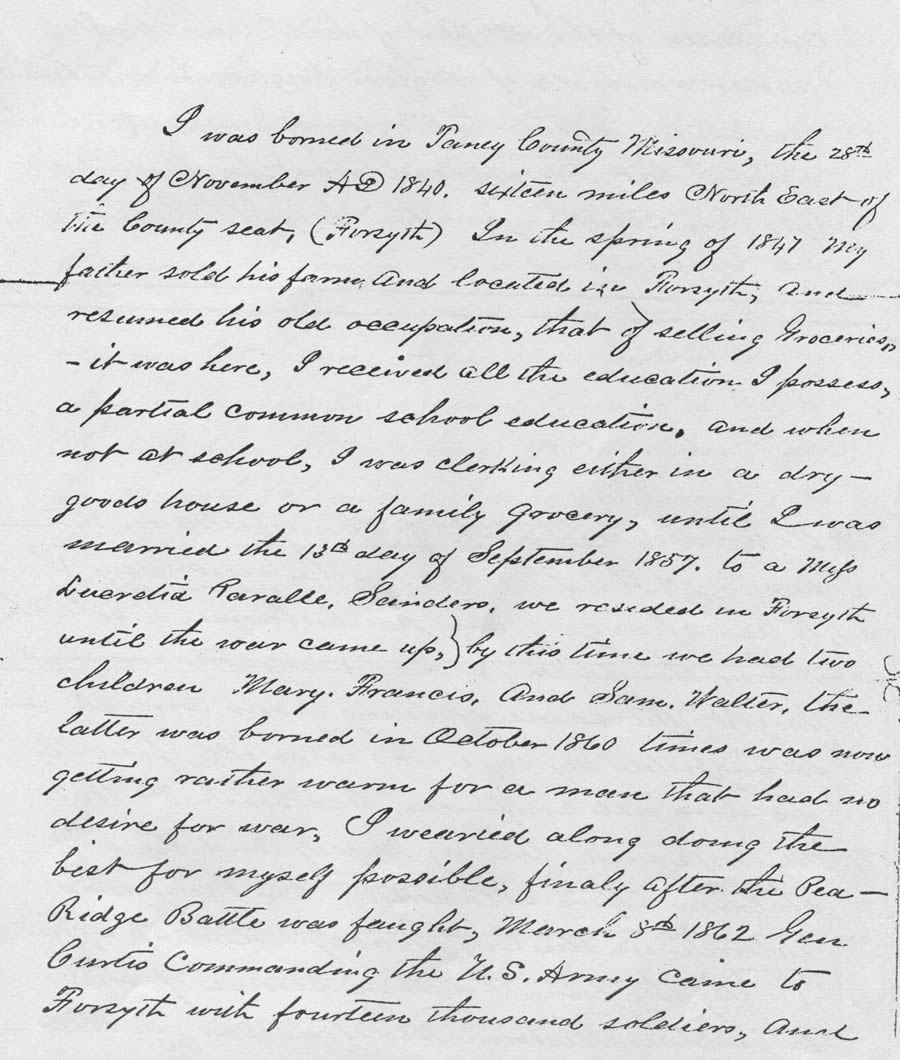 I was borned in Taney County Missouri, the 28th
day of November AD 1840. sixteen miles North East of
the County seat, (Forsyth) In the spring of 1847 my
father sold his farm and located in Forsyth, and
resumed his old occupation, that of selling Groceries,
- it was here, I received all the education I possess,
a partial common school education, and when
not at school, I was clerking either in a dry-
goods house or a family Grocery, until I was
married the 13th day of September 1857. to a Miss
Lucretia Saunders, we resided in Forsyth
until the war came up, } by this time we had two
children Mary. Francis, And Sam. Walter, the
latter was borned in October 1860 times was now
getting rather warm for a man that had no
desire for war, I wearied along doing the
best for myself possible, finaly after the Pea-
Ridge Battle was faught, March 8th 1862 Gen
Curtis Commanding the U.S. Army came to
Forsyth with fourteen thousand soldiers, and